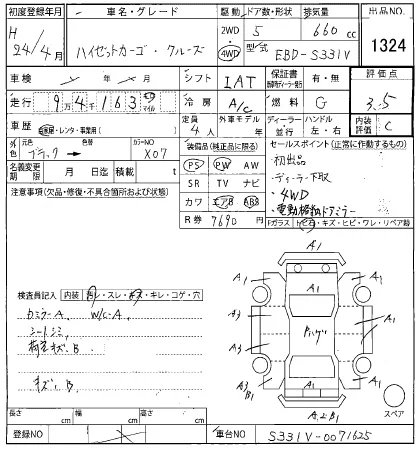 初度登録年月 車名・グレード 駆動 ドア数・形状 排気量 出品NO.
H 24/4月 ハイゼットカーゴ・クルーズ 2WD 4WD 5 660 cc 1324
型式 EBD-S331V
車検 年 月 シフト IAT 保証書 有・無 評価点
走行 9万4千163 km マイル 冷房 A/C 燃料 G 3.5
車歴 自家用・レンタ・事業用( ) 定員 4人 外車モデル年 ディーラー 並行 ハンドル 左・右 内装評価 C
色 元色 ブラック → 色替 カラーNO X07 装備品(純正品に限る) セールスポイント(正常に作動するもの)
名義変更期限 月 日迄 積載 t PS PW AW ・初出品
注意事項(欠品・修復・不具合箇所および状態) SR TV ナビ ・ディーラー下取
カワ エアB ABS ・4WD
R券 7690 ・電動格納ドアミラー
Fガラス トビ石・キズ・ヒビ・ワレ・リペア跡
A1
A1 A1
A1
検査員記入 内装 汚レ・スレ・キズ・キレ・コゲ・穴
カミラーA W/C-A
シートシミ
荷室キズ、B
キズ、B
A1 A1
A3 パハゲ A1
A3 A3
A3 B1 A1
A2 B1
スペア
長さ cm 幅 cm 高さ cm
登録NO 車台NO S331V-0071625